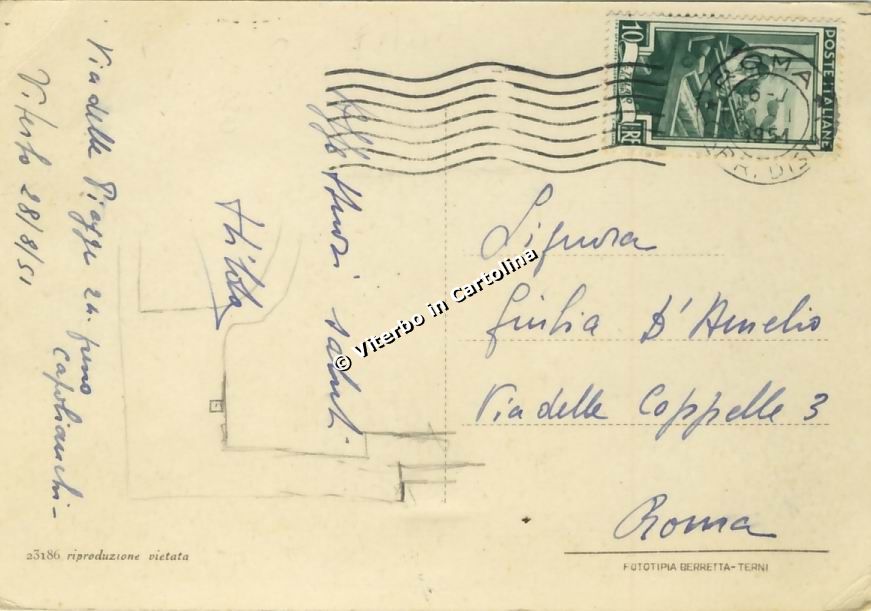 Via delle Piagge 24. preno
Capolianchi -
Viterbo 28/8/51
Affettuosi saluti
Signora
Giulia D'Amelio
Via delle Coppelle 3
Roma
10
LIRE
POSTE ITALIANE
ROMA
1951
© Viterbo in Cartolina
23186 riproduzione vietata
FOTOTIPIA BERRETTA-TERNI